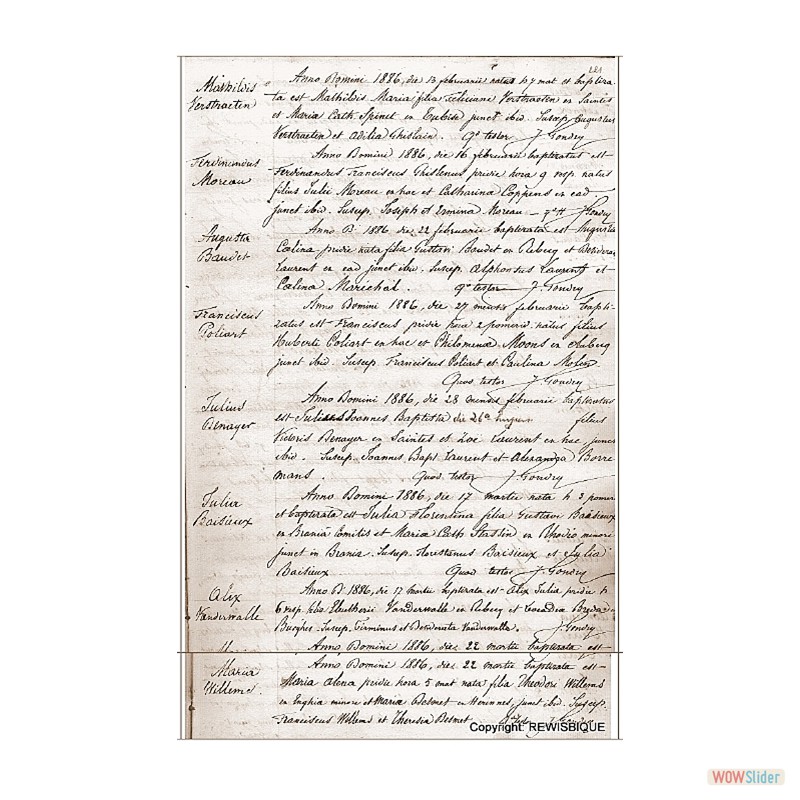 221
Mathildis
Verstraeten
Anno Domini 1886, die 13 februarii nata h 7 mat et baptiza-
ta est Mathildis Maria filia Feliciani Verstraeten ex Saintes
et Maria Cath Spinet ex Tubise junct ibid. Suscep Augustus
Verstraeten et Adilia Ghislain. Qd testor J Gondry
Ferdinandus
Moreau
Anno Domini 1886, die 16 februarii baptizatus est
Ferdinandus Franciscus Ghislenus pridie hora 9 vesp. natus
filius Julii Moreau ex hac et Catharina Coppens ex ead
junct ibid. Suscep. Joseph et Ermina Moreau J Gondry
Augusta
Baudet
Anno D 1886 die 22 februarii baptizata est Augusta
Cœlina pridie nata filia Gustavi Baudet ex Rebecq et
Laurent ex ead junct ibid. Suscep. Alphonsus Laurent et
Cœlina Maréchal. Qd testor J Gondry
Franciscus
Poliart
Anno Domini 1886, die 27 mensis februarii bapti-
zatus est Franciscus, pridie hora 2 pomerid. natus filius
Huberti Poliart ex hac et Philomena Moons ex
junct ibid. Suscep. Franciscus Poliart et Paulina
Quod testor J Gondry
Julius
Benayer
Anno Domini 1886, die 28 mensis februarii baptizatus
est Julius Joannes Baptista die 26a filius
Victoris Benayer ex Saintes et Zoé Laurent ex hac, junct
ibid. Suscep. Joannes Bapt Laurent et Alexandra Borre
mans. Quod testor J Gondry
Julia
Baisieux
Anno Domini 1886, die 17 martii nata h 3 pomer
et baptizata est Julia Florentina filia Gustavi Baisieux
ex Brania Comitis et Maria Cath Stassin ex Rhodio minore
junct in Brania. Suscep. Florestanus Baisieux et Sylia
Baisieux Quod testor J Gondry
Alix
Vanderwalle
Anno D 1886, die 17 martii baptizata est Alix Julia pridie h
6 vesp. filia Eleutherii Vanderwalle ex Rebecq et Leocadia
Suscep. Firminus et Desiderata Vanderwalle. J. Gondry
Anno Domini 1886, die 22 martii baptizata est
Maria
Willems.
Anno Domini 1886, die 22 martii baptizata est
Maria Alena pridie hora 5 mat nata filia Theodori Willems
ex Enghia minore et Maria Desmet ex Herinnes, junct ibid. Suscep.
Franciscus Willems et Theresia Desmet
Copyright: REWISBIQUE
WOWSlider